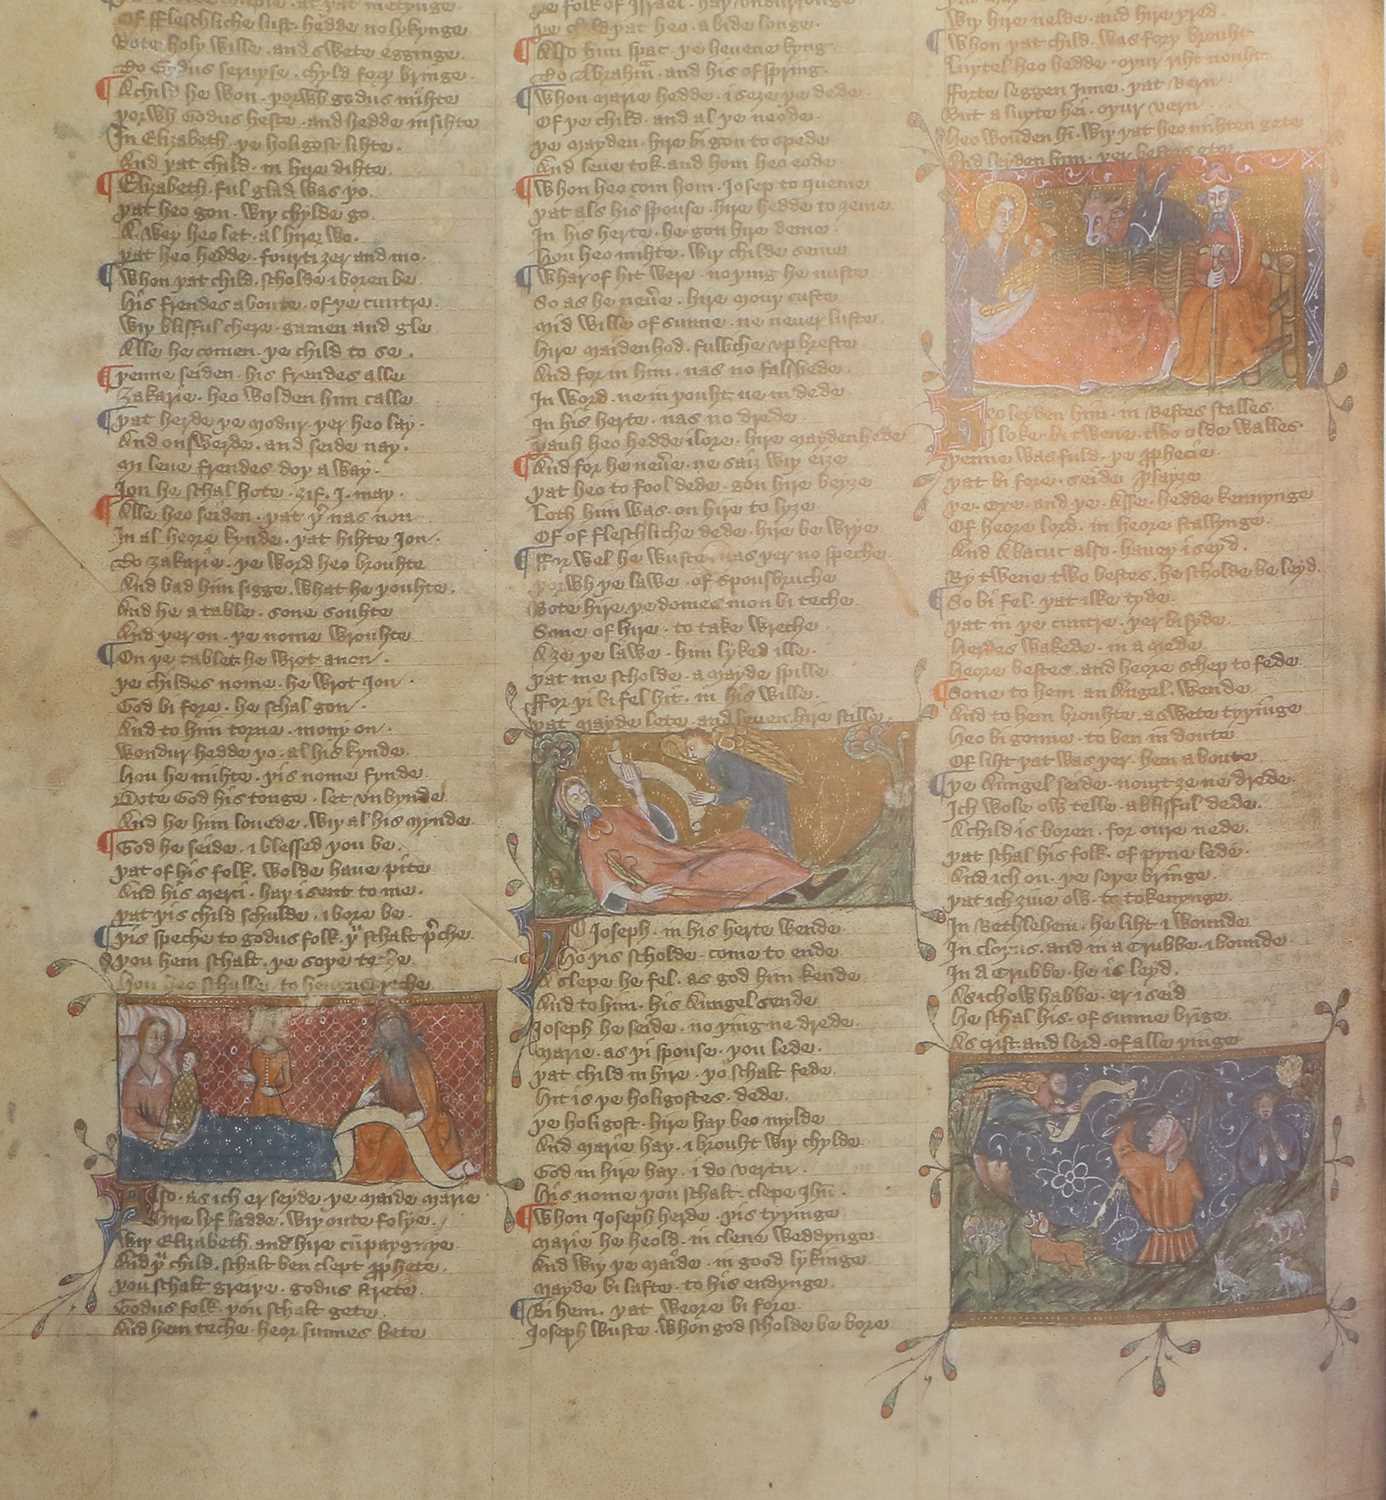 Of fleschliche lust · hedde no lykynge
Bote holy wille · and swete egginge
To Godus seruyse · chyld forþ bringe
A child he won · þorwh godus mihte
þorwh Godus heste · and hedde insihte
In Elizabeth · þe holigost lihte
And þat child · in hire dihte
Elizabeth · ful glad was þo
þat heo gon · wiþ chylde go
A wey heo let · al hire wo
þat heo hedde · fourti ȝer and mo
Whon þat child · scholde i boren be
his frendes aboute · of þe cuntre
wiþ blisful chere · gamen and gle
Alle he comen · þe child to se
þenne seiden · his frendes alle
Zakarie · heo wolden him calle
þat herde þe modur · þer heo lay
And onswerde · and seide nay
Mi leue frendes doþ a way
Jon he schal hote · ȝif I may
Alle heo seiden · þat þer nas non
In al heore kynde · þat hihte Jon
To Zakarie · þe word heo brouhte
And bad him sigge · what he þouhte
And he a table · sone souhte
And þer on · þe nome wrouhte
On þe table · he wrot anon
þe childes nome · he wrot Jon
God bi fore · he schal gon
And to him torne · mony on
Wondur hedde þo · al his kynde
hou he mihte · þis nome fynde
Bote God his tonge · let vnbynde
And he him louede · wiþ al his mynde
God he seide · i blessed þou be
þat of his folk · wolde haue pite
And his merci · haþ i sent to me
þat þis child schulde · i bore be
þis speche to godus folk · þu schalt preche
þou hem schalt · þe soþe teche
Also · as ich er seyde · þe maide marie
hire lyf ladde · wiþ oute folye
wiþ Elizabeth · and hire cumpaygnye
And þi child · schalt ben clept prophete
þou schalt greiþe · godus strete
Godus folk · þou schalt gete
And hem teche · heor sunnes bete
þe folk of Israel · haþ vndurfonge
þe child þat heo · a bide longe
Also him spac · þe heuene kyng
To Abraham · and his ofspring
Whon Marie hedde · i seȝe þe dede
Of þe child · and al þe neode
þe mayden · hire bi gon to spede
And leue tok · and hom heo eode
Whon heo com hom · Josep to queme
þat als his spouse · hire hedde to ȝeme
In his herte · he gon hire deme
hou heo mihte · wiþ childe seme
Wharof hit were · no þing he nuste
So as he neuere · hire mouþ custe
Mid wille of sunne · ne neuer luste
hire maidenhod · fulliche vp breste
And for in him · nas no falshede
In word · ne in þouht ne in dede
In his herte · nas no drede
þauh heo hedde ilore · hire maydenhede
And for he neuere · ne saiȝ wiþ eiȝe
þat heo to fool dede · gon hire beyȝe
Loth him was · on hire to lyȝe
Of of fleschliche dede · hire be wryȝe
ffor wel he wuste · nas þer no speche
þorwh þe lawe · of spousbruche
Bote hire þe domes mon bi teche
Sone of hire · to take wreche
Aȝe þe lawe · him lyked ille
þat me scholde · a mayde spille
ffor þi bi fel hit · in his wille
þat mayde lete · and leuen hire stille
Joseph · in his herte wende
ho þis scholde · come to ende
A slepe he fel · as god him kende
And to him · his Aungel sende
Joseph he seide · no þing ne drede
Marie · as þi spouse · þou lede
þat child in hire · þo schalt fede
hit is þe holigostes · dede
þe holigost · hire haþ beo mylde
And marie haþ · i brouht wiþ chylde
God in hire haþ · i do vertu
his nome þou schalt · clepe Jhu
Whon Joseph herde · þis tyþinge
Marie he heold · in clene weddynge
And wiþ þe maide · in good lykinge
Mayde bi lafte · to his endynge
Bi hem · þat weore bi fore
Joseph wuste · whon god scholde be bore
Wiþ hire nelde · and hire þred
Whon þat child · was forþ brouht
Luytel heo hedde · oþur riht nouht
fforte leggen inne · þat bern
But a luyte hei · oþur vern
heo wounden him · wiþ þat heo mihten gete
And leyden him · þer bestes ete
heo leyden him · in bestes stalles
I loke · bi twene · two olde walles
þenne was fuld · þe prophecie
þat bi fore · seide Ysayȝe
þe Oxe · and þe Asse · hedde kennynge
Of heore lord · in heore stallynge
And Abacuc also · haueþ i seyd
By twene two bestes · he scholde be leyd
So bi fel · þat ilke tyde
þat in þe cuntre · þer bi syde
Herdes wakede · in a mede
heore bestes · and heore schep to fede
Sone to hem · an Angel · wende
And to hem brouhte · a swete tyþinge
heo bi gonne · to ben in doute
Of liht þat was þer · hem a boute
þe Aungel seide · nouȝt ȝe ne drede
Ich wole ow telle · a blisful dede
A child is boren · for oure nede
þat schal his folk · of pyne lede
And ich ou · þe soþe bringe
þat ich ȝiue ow · to tokenynge
In Bethleem · he liht i wounde
In cloþus · and in a Crubbe · i bounde
In a Crubbe · he is leyd
As ich ow habbe · er i seid
he schal his · of sunne bringe
As crist · and lord · of alle þinge